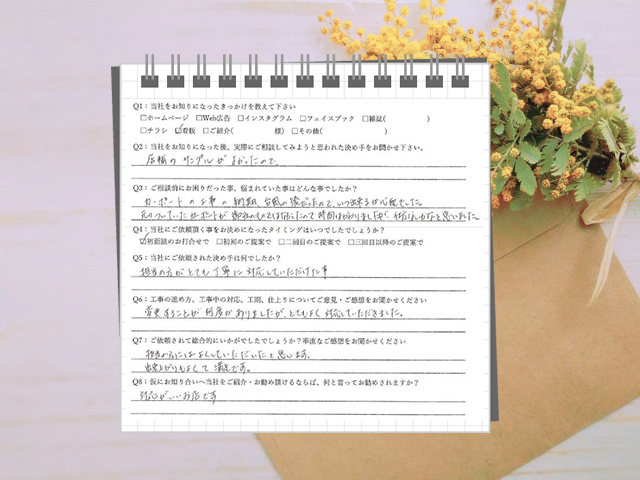 Q1：当社をお知りになったきっかけを教えて下さい
□ホームページ □Web広告 □インスタグラム □フェイスブック □雑誌( )
□チラシ ☑看板 □ご紹介( 様) □その他( )
Q2：当社をお知りになった後、実際にご相談してみようと思われた決め手をお聞かせ下さい。
店舗の サンプルが よかったので、
Q3：ご相談前にお困りだった事、悩まれていた事はどんな事でしたか？
カーポートの工事の納期、台風の後だったので、いつ出来るか心配でした。
元々ついていたカーポートが
Q4：当社にご依頼頂く事をお決めになったタイミングはいつでしたでしょうか？
☑初面談のお打合せで □初回のご提案で □二回目のご提案で □三回目以降のご提案で
Q5：当社にご依頼された決め手は何でしたか？
担当の方がとても丁寧に対応していただけた事
Q6：工事の進め方、工事中の対応、工期、仕上りについてご意見・ご感想をお聞かせください
変更することが何度かありましたが、とてもよく対応していただきました。
Q7：ご依頼されて総合的にいかがでしたでしょうか？率直なご感想をお聞かせください
担当の方にはよくしていただいたと思います。
出来上がりもよくて満足です。
Q8：仮にお知り合いへ当社をご紹介・お勧め頂けるならば、何と言ってお勧めされますか？
対応がいいお店です